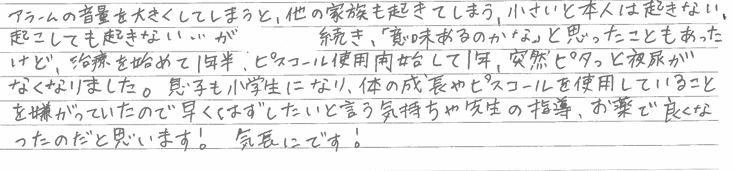 アラームの音量を大きくしてしまうと、他の家族も起きてしまう、小さいと本人は起きない、
起こしても起きない…が　　　続き、「意味あるのかな」と思ったこともあった
けど、治療を始めて1年半、ピスコール使用開始して1年、突然ピタッと夜尿が
なくなりました。息子も小学生になり、体の成長やピスコールを使用していること
を嫌がっていたので早くはずしたいと言う気持ちや先生の指導、お薬で良くな
ったのだと思います！　気長にです！